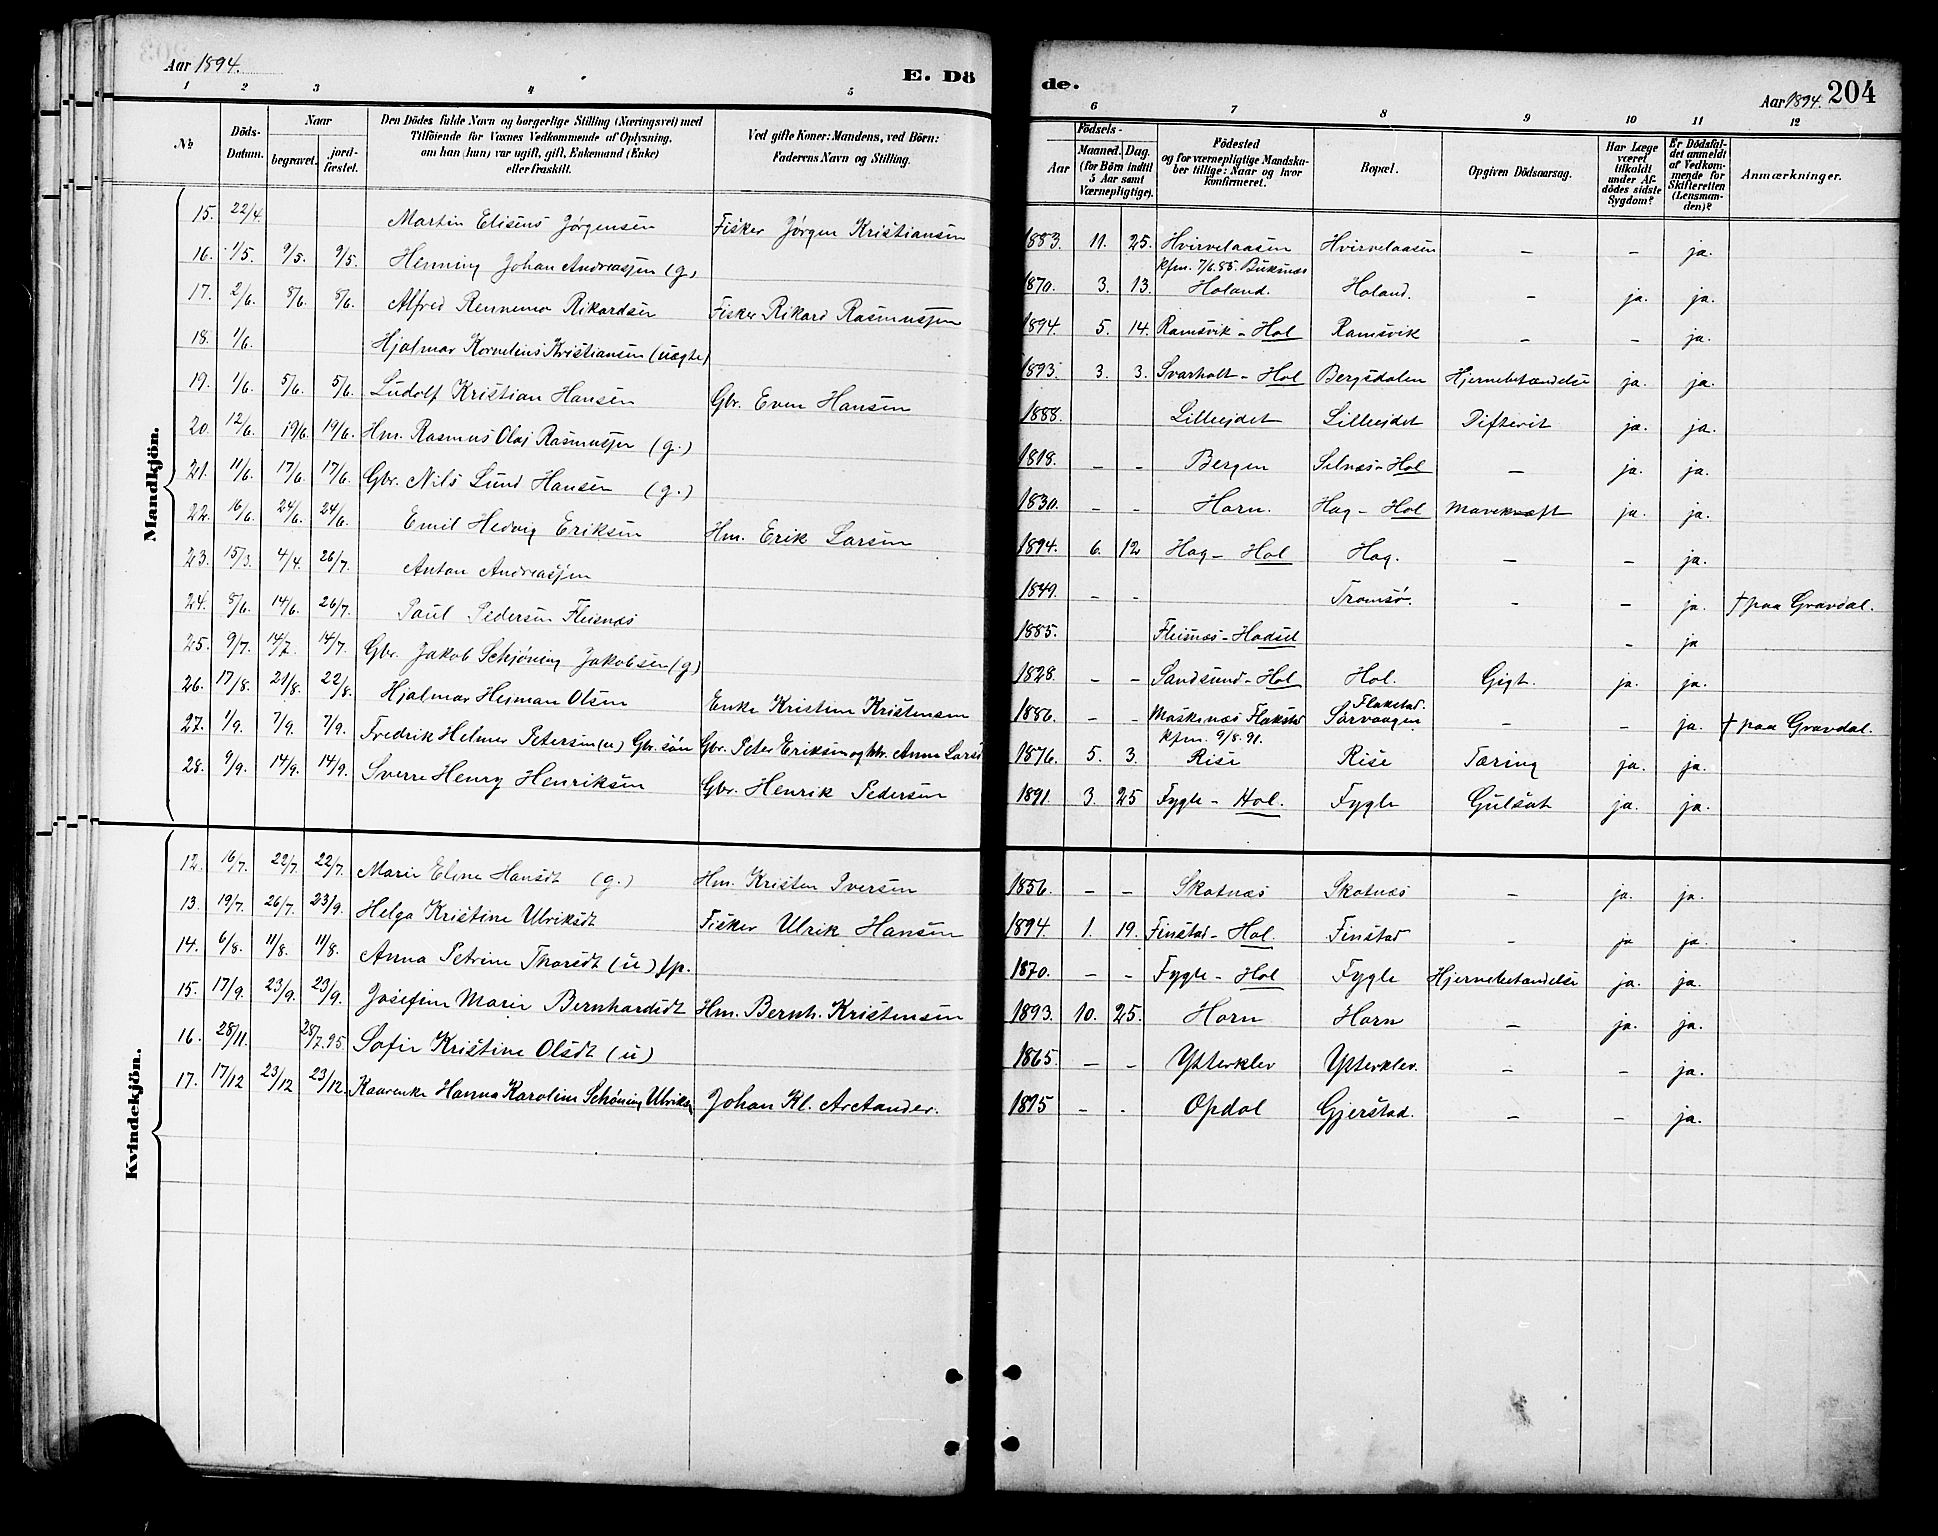 Aar 1894.
E. Dö
de.
Aar 1894.
204
1 2 3 4 5 6 7 8 9 10 11 12
№
Döds-Datum.
Naar
begravet.
jordfæstet.
Den Dödes fulde Navn og borgerlige Stilling (Næringsvei) med
Tilföiende for Voxnes Vedkommende af Oplysning,
om han (hun) var ugift, gift, Enkemand (Enke)
eller fraskilt.
Ved gifte Koner: Mandens, ved Börn:
Faderens Navn og Stilling.
Födsels-
Aar
Maaned. Dag.
(for Börn indtil 5 Aar samt Værnepligtige).
Födested
og for værnepligtige Mandskaber tillige: Naar og hvor konfirmeret.
Bopæl.
Opgiven Dödsaarsag.
Har Læge været tilkaldt under Afdödes sidste Sygdom?
Er Dödsfaldet anmeldt af Vedkommende for Skifteretten (Lensmanden)?
Anmærkninger.
Mandkjön.
15. 22/4. Martin Eliseus Jørgensen Fisker Jørgen Kristiansen 1883. 11. 25. Hvirvelaasen Hvirvelaasen – – ja.
16. 1/5. 9/5. 9/5. Henning Johan Andreassen (g) 1870. 3. 13. kfm. 7/6.85. Buksnæs Holand. Holand. – ja. ja.
17. 2/6. 8/6. 8/6. Alfred Rennemo Rikardsen Fisker Rikard Rasmussen 1894. 5. 14. Ramsvik - Hol Ramsvik – – ja.
18. 1/6. Hjalmar Kornelius Kristiansen (uægte) 1893. 3. 3. Svarholt - Hol Bergsdalen Hjernebetændelse ja. ja.
19. 1/6. 5/6. 5/6. Ludolf Kristian Hansen Gbr. Even Hansen 1888. Lilleeidet Lilleeidet Difterit ja. ja.
20. 12/6. 19/6. 19/6. Hm. Rasmus Olai Rasmussen (g.) 1818. – – Bergen Selnæs - Hol – ja. ja.
21. 11/6. 17/6. 17/6. Gbr. Nils Lund Hansen (g.) 1830. – – Horn. Hag - Hol Mavekræft ja. ja.
22. 16/6. 24/6. 24/6. Emil Hedvig Eriksen Hm. Erik Larsen 1894. 6. 12 Hag - Hol Hag. – – ja.
23. 15/3. 4/4. 26/7. Anton Andreassen 1849. – – Tromsø. – – ja. † paa Gravdal.
24. 8/6. 14/6. 26/7. Paul Pedersen Fleisnæs 1885. Fleisnæs - Hadsel – ja
25. 9/7. 14/7. 14/7. Gbr. Jakob Schjöning Jakobsen (g) 1828. – – Sandsund - Hol Hol. Gigt. ja. ja.
26. 17/8. 21/8. 22/8. Hjalmar Heiman Olsen Enke Kristine Kristensen 1886. – – Flakstad Flakstad. Sørvaagen – – ja. † paa Gravdal.
27. 1/9. 7/9. 7/9. Fredrik Helmer Petersen (u) Gbr. søn Gbr. Peter Eriksen og Anna Larsd 1876. 5. 3. kfm. 9/8.91. Rise Rise Tæring ja. ja.
28. 9/9. 14/9. 14/9. Sverre Henry Henriksen Gbr. Henrik Pedersen 1891. 3. 25 Fygle - Hol. Fygle Gulsot ja. ja.
Kvindekjön.
12. 16/7. 22/7. 22/7. Marie Eline Hansdt (g.) Hm. Kristen Iversen 1856. – – Skotnæs Skotnæs – ja. ja.
13. 19/7. 26/7. 23/9. Helga Kristine Ulriksdt Fisker Ulrik Hansen 1894. 1. 19. Finstad - Hol. Finstad – ja ja.
14. 6/8. 11/8. 11/8. Anna Petrine Thorsdt (u) fp. 1870. – – Fygle - Hol Fygle Hjernebetændelse ja. ja.
15. 17/9. 23/9. 23/9. Josefine Marie Bernhardsdt Hm. Bernh. Kristensen 1893. 10. 25. Horn Horn – ja. ja.
16. 28/11. 28/7.95. Sofie Kristine Olsdt (u) 1865. – – Ytterklev Ytterklev. – – ja.
17. 17/12 23/12 23/12. Hanna Karoline Schöning Ulriksen Johan Kl. Arctander. 1875 – – Opdal Gjerstad. – – ja.